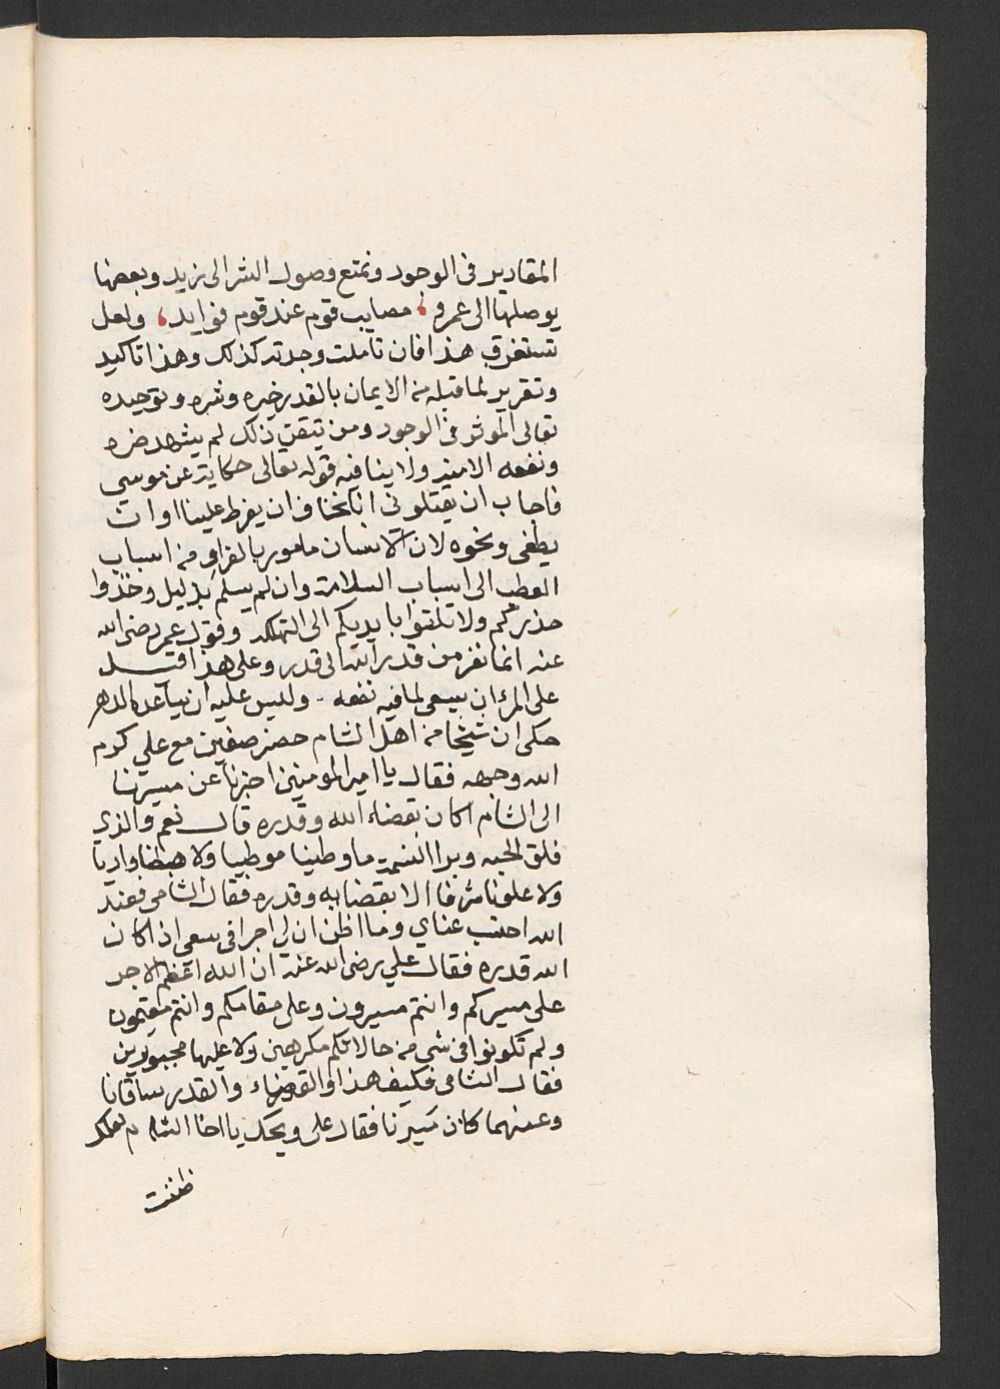 المقادير في الوجود وتمتع وصول الشر الى زيد وبعضها
يوصلها الى عمرو ، مصايب قوم عند قوم فوايد ، ولعل
تستغرق هذا فان تاملت وجدته كذلك وهذا تاكيد
وتقرير لما قبله من الايمان بالقدر خيره وشره وتوحيده
تعالى الموثر في الوجود ومن تيقن ذلك لم يشهد ضره
ونفعه الا منه ولا ينافيه قوله تعالى حكاية عن موسى
فاخاف ان يقتلوني اننا نخاف ان يفرط علينا او ان
يطغى ونحوه لان الانسان مامور بالفرار من اسباب
العطب الى اسباب السلامة وان لم يسلم بدليل وخذوا
حذركم ولا تلقوا بايديكم الى التهلكه وقول عمر رضى الله
عنه انما نفر من قدر الله الى قدره وعلى هذا قيل
على المرء ان يسعى لما فيه نفعه .. وليس عليه ان يساعده الدهر
حكى ان شيخا من اهل الشام حضر صفين مع علي كرم
الله وجهه فقال يا امير المومنين اخبرنا عن مسيرنا
الى الشام اكان بقضاء الله وقدره قال نعم والذي
فلق الحبه وبرا النسمة ما وطينا موطيا ولا هبطنا واديا
ولا علونا شرفا الا بقضايه وقدره فقال الشامى فعند
الله احتسب عناي وما اظن ان لي اجرا في سعى اذا كان
الله قدره فقال علي رضى الله عنه ان الله اعظم الاجر
على مسيركم وانتم مسيرون وعلى مقامكم وانتم مقيمون
ولم تكونوا في شي من حالاتكم مكرهين ولا عليها مجبورين
فقال الشامى فكيف هذا والقضاء والقدر ساقانا
وعنهما كان مسيرنا فقال على ويحك يا اخا الشام لعلك
ظننت